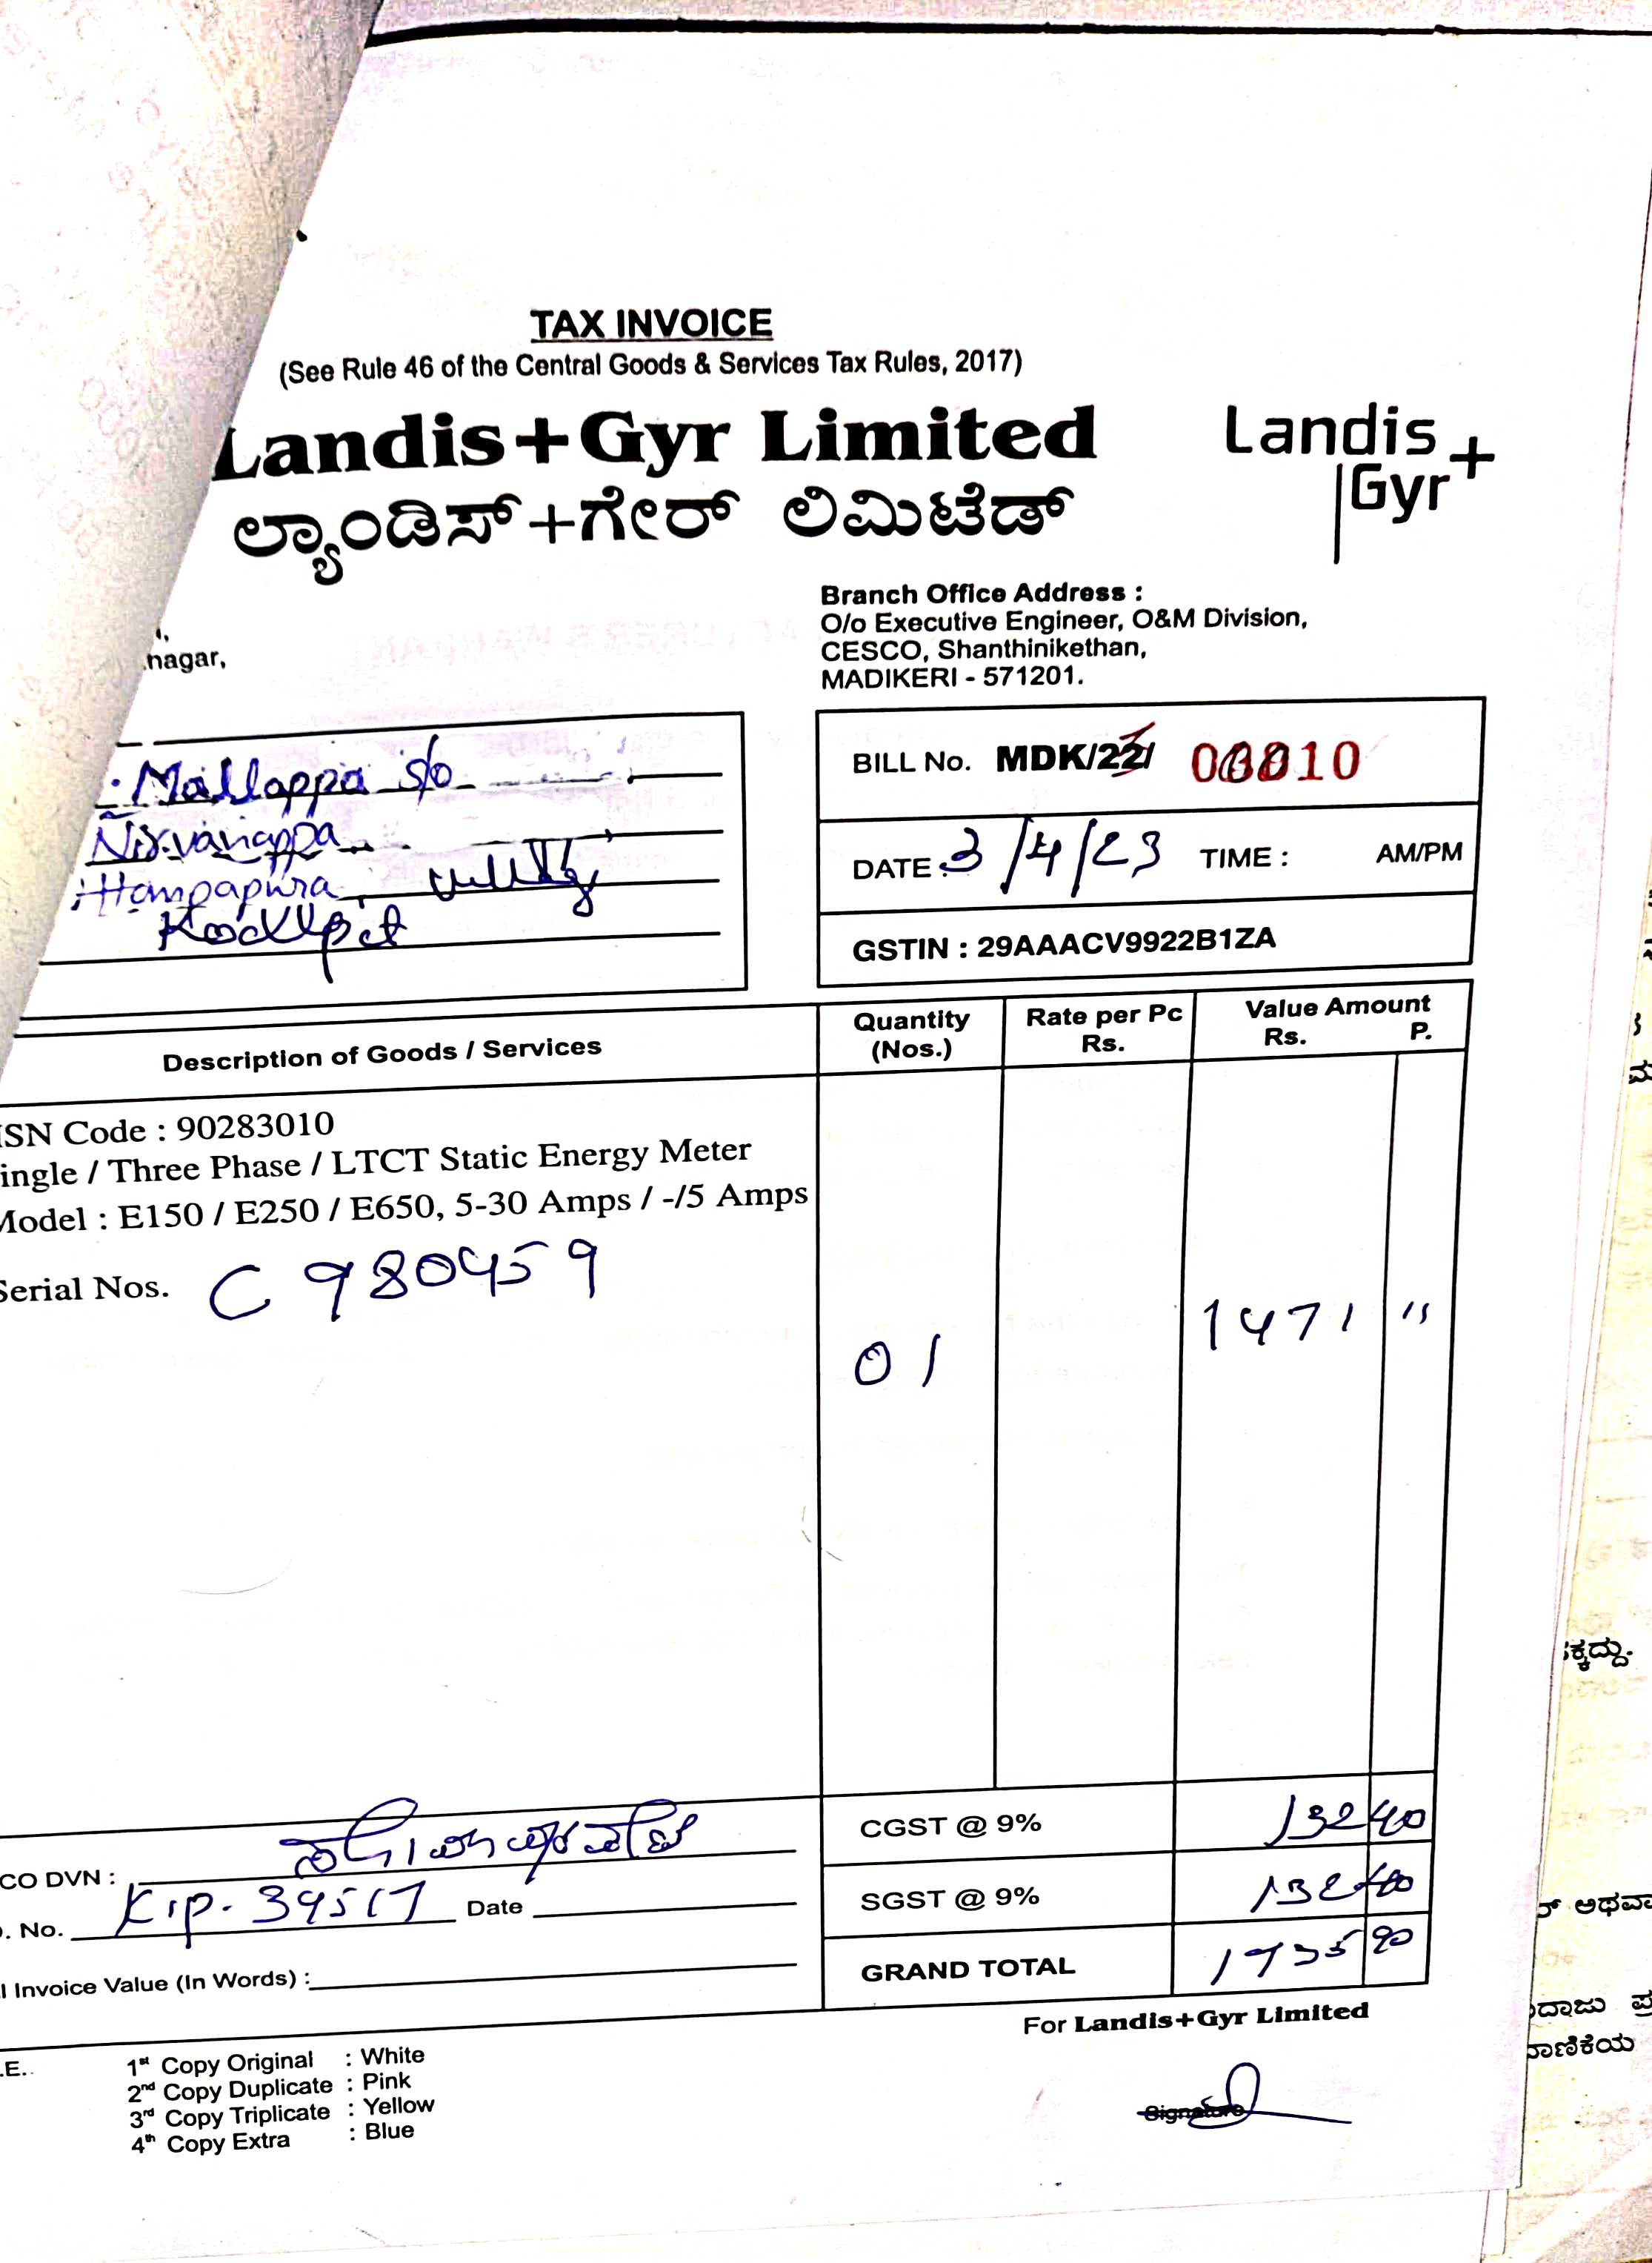 TAX INVOICE
(See Rule 46 of the Central Goods & Services Tax Rules, 2017)
Landis+Gyr Limited
Landis+
Gyr
ಲ್ಯಾಂಡಿಸ್+ಗೇರ್ ಲಿಮಿಟೆಡ್
nagar,
Branch Office Address :
O/o Executive Engineer, O&M Division,
CESCO, Shanthinikethan,
MADIKERI - 571201.
: Mallappa s/o
Nirvanappa
Hampapura,
Kodlipet
BILL No. MDK/
DATE : 3/4/23 TIME : AM/PM
GSTIN : 29AAACV9922B1ZA
Description of Goods / Services
Quantity (Nos.)
Rate per Pc Rs.
Value Amount Rs. P.
SN Code : 90283010
ingle / Three Phase / LTCT Static Energy Meter
Model : E150 / E250 / E650, 5-30 Amps / -/5 Amps
Serial Nos. C 980459
01
1471 "
CGST @ 9% 132 40
SGST @ 9% 132 40
GRAND TOTAL 1735 80
CO DVN :
. No. Date
l Invoice Value (In Words) :
For Landis+Gyr Limited
.E.
1st Copy Original : White
2nd Copy Duplicate : Pink
3rd Copy Triplicate : Yellow
4th Copy Extra : Blue
Signature
ಕ್ಕದ್ದು.
ಅಥವಾ